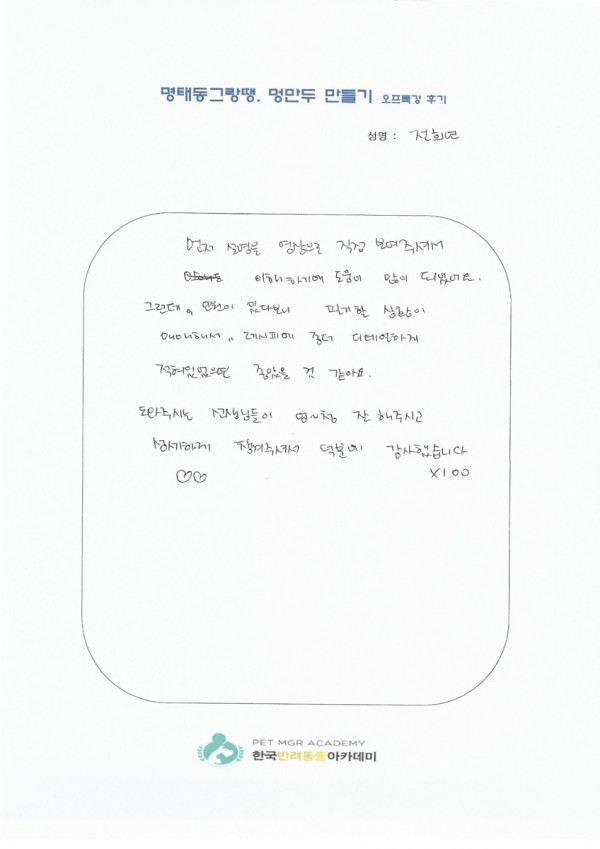 명태동그랑땡. 멍만두 만들기 오프특강 후기
성명 : 전희연
먼저 설명을 영상으로 직접 보여주셔서
이해하기에 도움이 많이 되었어요.
그런데 인원이 있다보니 필기할 상황이
애매해서 .. 레시피에 좀더 디테일하게
적혀있었으면 좋았을 것 같아요.
도와주시는 선생님들이 엄~청 잘 해주시고
챙겨주셔서 덕분에 감사했습니다
♡♡ X100
PET MGR ACADEMY
한국반려동물아카데미